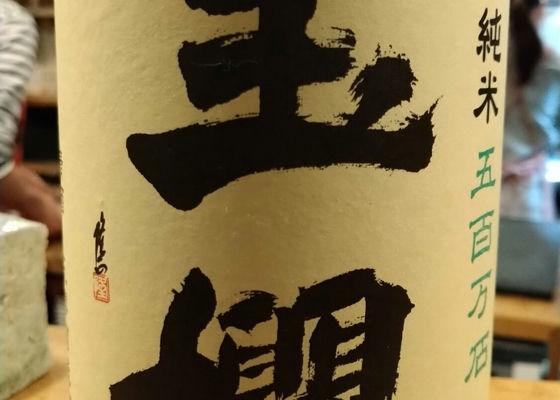 純米 五百万石
玉櫻